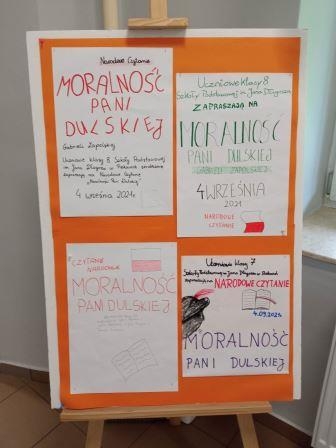 Narodowe Czytanie
MORALNOŚĆ
PANI
DULSKIEJ
Gabrieli Zapolskiej
Uczniowie klasy 8 Szkoły Podstawowej
im. Jana Długosza w
zapraszają na Narodowe Czytanie
"Moralności Pani Dulskiej"
4 września 2021r.
Uczniowie klasy 8
Szkoły Podstawowej im. Jana Długosza
ZAPRASZAJĄ NA
MORALNOŚĆ
PANI DULSKIEJ
GABRIELI ZAPOLSKIEJ
4 WRZEŚNIA
2021
NARODOWE
CZYTANIE
CZYTANIE
NARODOWE
MORALNOŚĆ
PANI DULSKIEJ
Uczniowie klasy 7
Szkoły Podstawowej im. Jana Długosza w
zapraszają na NARODOWE CZYTANIE
4.09.2021r.
MORALNOŚĆ
PANI DULSKIEJ